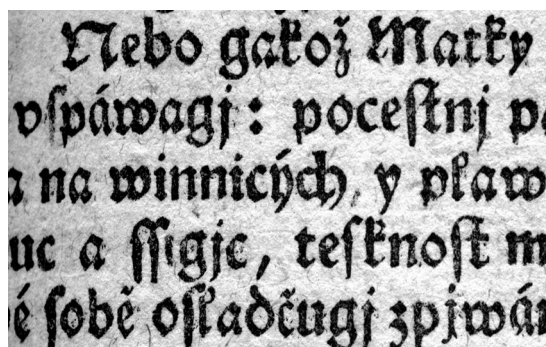 Nebo gakož Matky
vſpáwagj: poceſtnj pa
a na winnicých, y plaw
uc a ſſigje, teſknoſt m
é ſobě oſladčugj zpjwán